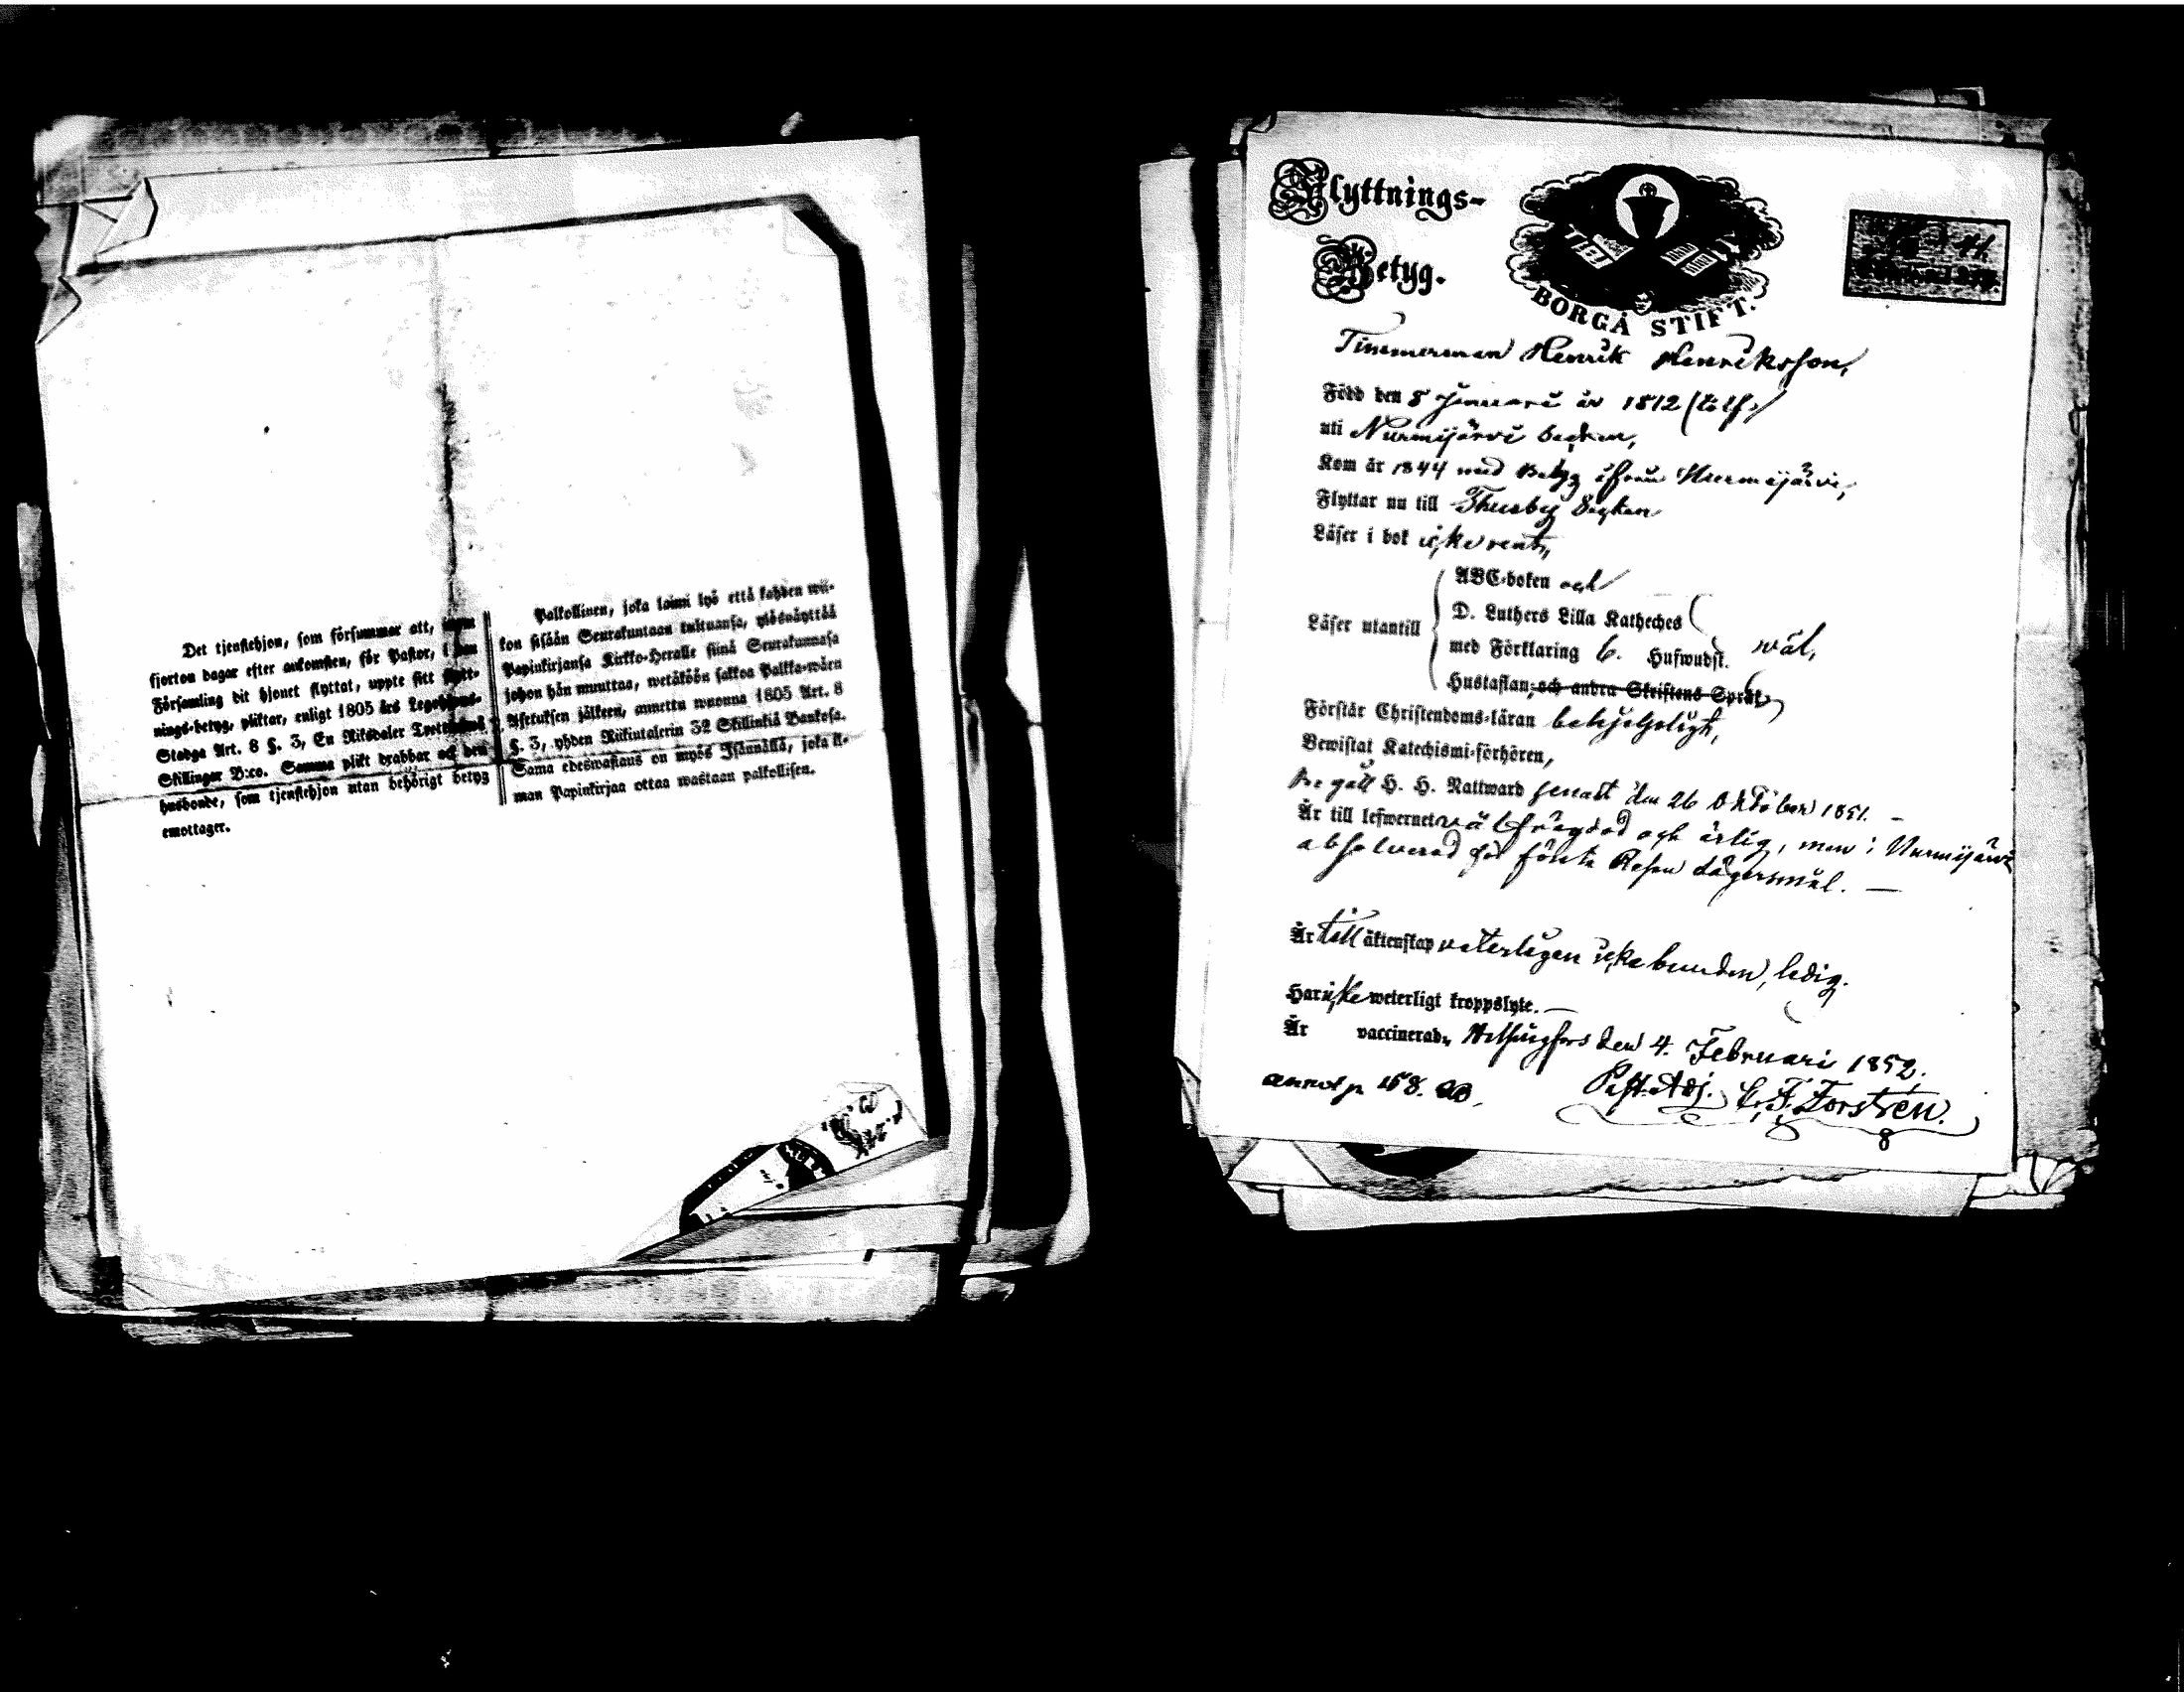 Det tjenstehjon, som försummar att, inom
fjorton dagar efter ankomsten, för Pastor, i den
Församling dit hjonet flyttat, uppte sitt flytt-
nings-betyg, pliktar, enligt 1805 års Legohjons-
Stadga Art. 8 §. 3, En Riksdaler Trettiotvå
Skillingar B:co. Samma plikt drabbar ock den
husbonde, som tjenstehjon utan behörigt betyg
emottager.
Palkollinen, joka laimi lyö että kahden wii-
kon sisään Seurakuntaan tultuansa, ylösnäyttää
Papinkirjansa Kirkko-Heralle siinä Seurakunnasa
johon hän muuttaa, wetäköön sakkoa Palkka-wäen
Asetuksen jälkeen, annettu wuonna 1805 Art. 8
§. 3, yhden Riikintalerin 32 Skillinkiä Bankosa.
Sama edeswastaus on myös Isännällä, joka il-
man Papinkirjaa ottaa wastaan palkollisen.
Flyttnings-
Betyg.
BORGÅ STIFT.
Timmerman Henrik Henriksson,
Född den 8 Januari år 1812 (tolf)
uti Nurmijärvi Socken,
Kom år 1844 med Betyg ifrån Nurmijärvi,
Flyttar nu till Thusby Socken
Läser i bok icke rent,
ABC-boken och
D. Luthers Lilla Katheches
Läser utantill
med Förklaring 6. Hufwudst. wäl,
Hustaflan, och andra Skriftens Språk,
Förstår Christendoms-läran behjelpligt,
Bewistat Katechismi-förhören,
Begått H. H. Nattward senast den 26 Oktober 1851. —
Är till lefwernet wälfrägdad och ärlig, men i Nurmijärvi
absolverad för första Resan Lägersmål. —
Är till äktenskap veterligen icke bunden, ledig.
Har icke weterligt kroppslyte. —
Är vaccinerad, Helsingfors den 4. Februari 1852.
Past. Adj. C. F. Forstrén.
annot p. 158.
8